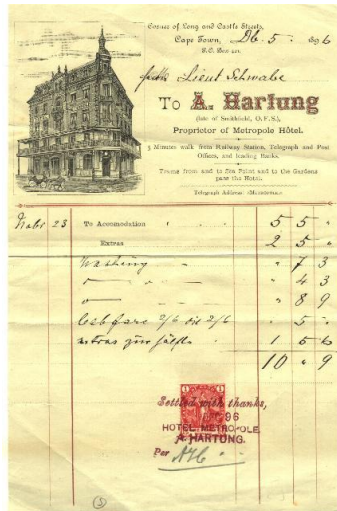 Corner of Long and Castle Streets,
Cape Town, Db. 5 1896
P.O. Box 421.
Lieut Schwabe
To A. Hartung
(late of Smithfield, O.F.S.),
Proprietor of Metropole Hôtel.
5 Minutes walk from Railway Station, Telegraph and Post
Offices, and leading Banks.
Trams from and to Sea Point and to the Gardens
pass the Hotel.
Telegraph Address: "Metropole."
Nobr 23 To Accomodation 5 5 "
Extras 2 5 "
Washing " 7 3
" 4 3
" 8 9
Cabfare 2/6 2/6 " 5 "
extras 1 5 6
10 " 9
Settled with thanks,
96
HOTEL METROPOLE
A. HARTUNG.
Per AH
5